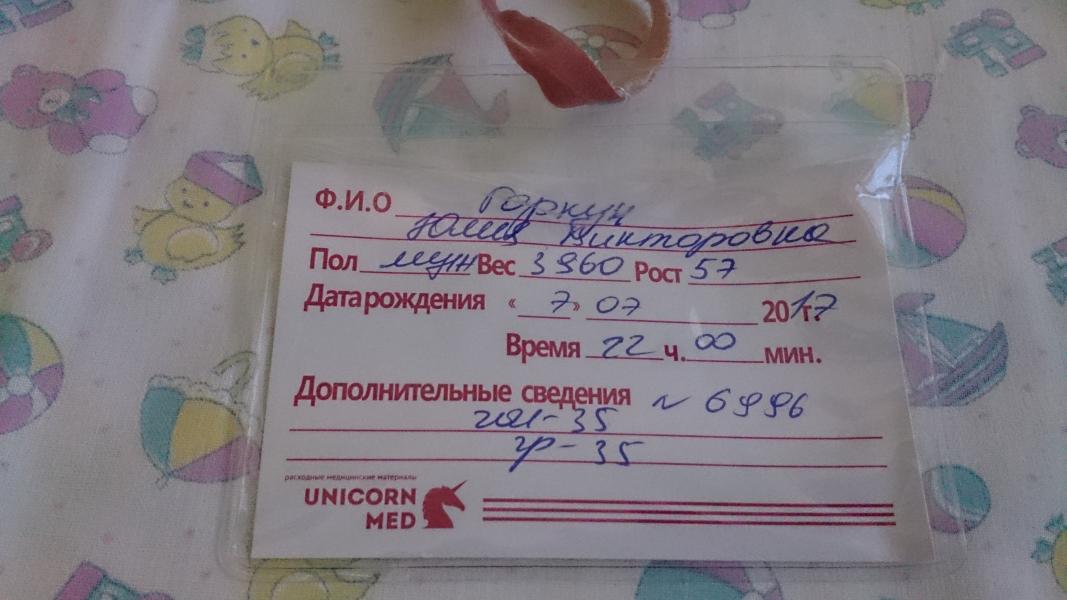 Ф.И.О Горкун
Юлия Викторовна
Пол муж Вес 3960 Рост 57
Дата рождения « 7 » 07 2017 г.
Время 22 ч. 00 мин.
Дополнительные сведения № 6996
гол-35
гр-35
расходные медицинские материалы
UNICORN
MED